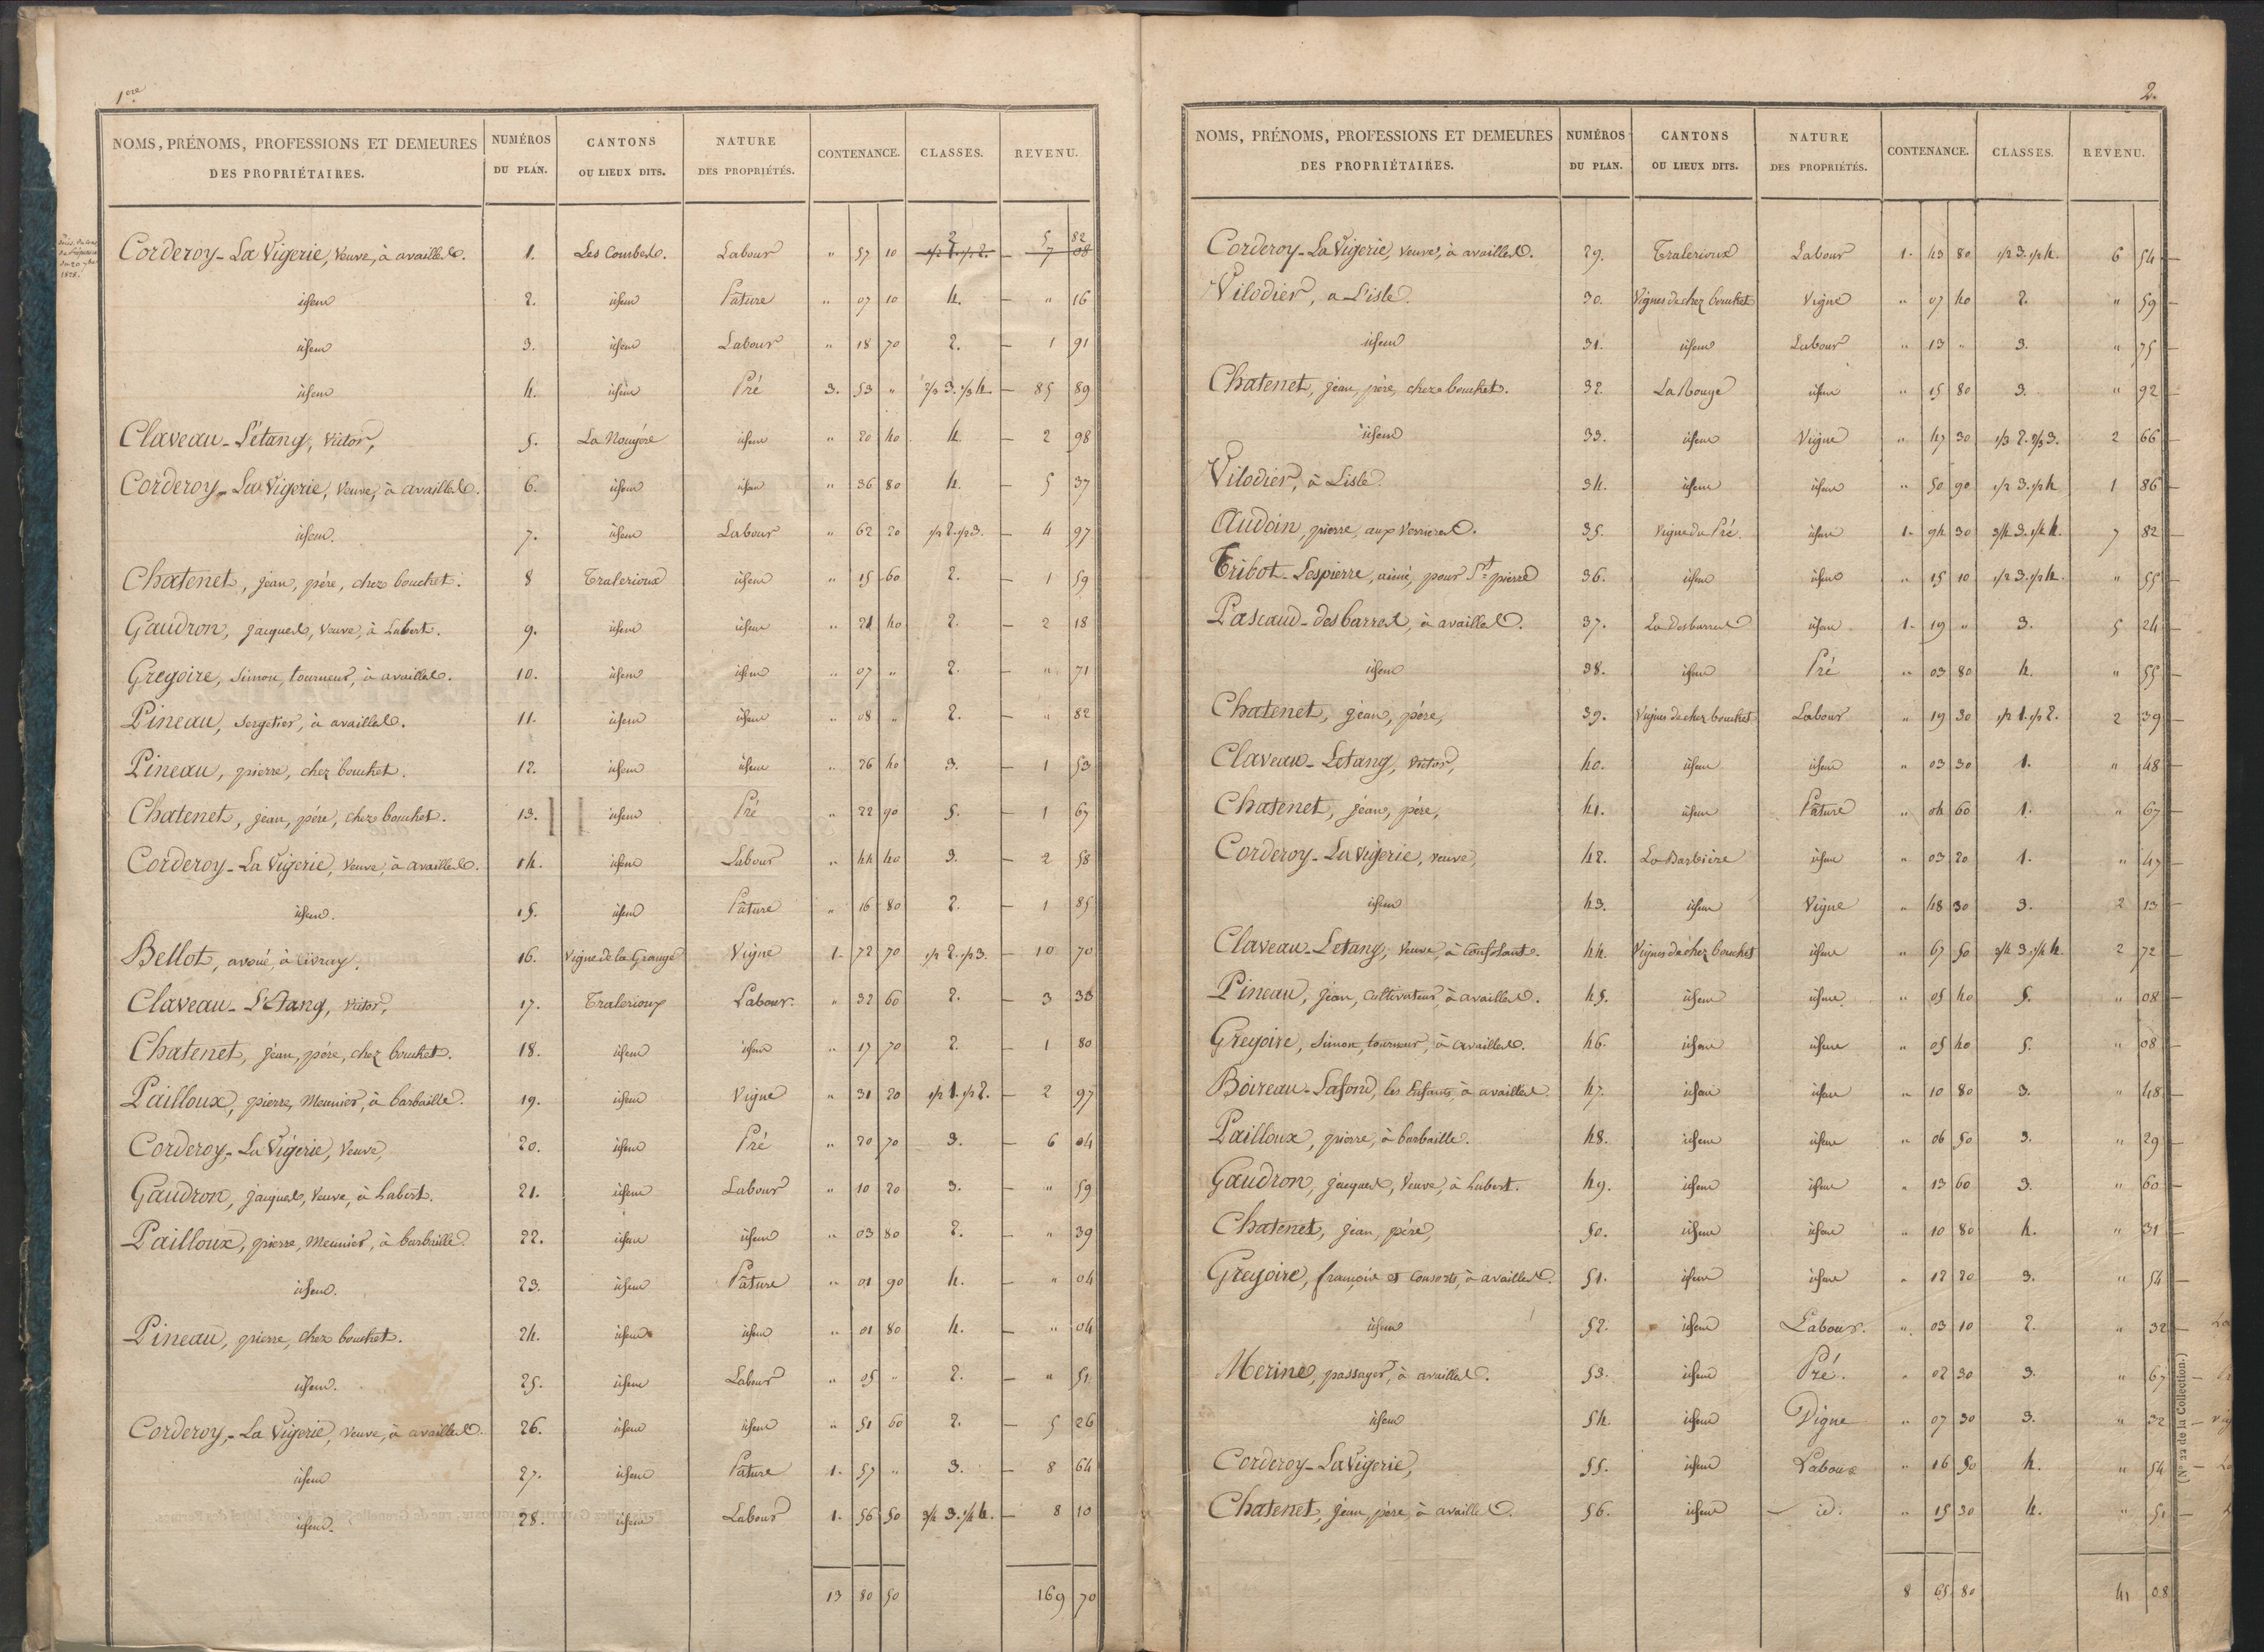 1ere
NOMS, PRÉNOMS, PROFESSIONS ET DEMEURES DES PROPRIÉTAIRES. | NUMÉROS DU PLAN. | CANTONS OU LIEUX DITS. | NATURE DES PROPRIÉTÉS. | CONTENANCE. | CLASSES. | REVENU.
1828.
Corderoy-La Vigerie, Veuve, à availles. 1. Les Combes. Labour " 57 10 2 1/2 1. 1/2 2. 5 82 7 08
idem 2. idem Pâture " 07 10 4. — " 16
idem 3. idem Labour " 18 70 2. — 1 91
idem 4. idem Pré 3. 53 " 2/3 3. 1/3 4. — 85 89
Claveau-L'étang, Victor, 5. La Nougére idem " 20 40 4. — 2 98
Corderoy-La Vigerie, Veuve, à availles. 6. idem idem " 36 80 4. — 5 37
idem. 7. idem Labour " 62 20 1/2 2. 1/2 3. — 4 97
Chatenet, jean, père, chez bouchet. 8 Tralerioux idem " 15 60 2. — 1 59
Gaudron, jacques, Veuve, à Labort. 9. idem idem " 21 40 2. — 2 18
Gregoire, Simon, tourneur, à availles. 10. idem idem " 07 " 2. — " 71
Pineau, Sergetier, à availles. 11. idem idem " 08 " 2. — " 82
Pineau, pierre, chez bouchet. 12. idem idem " 26 40 3. — 1 53
Chatenet, jean, père, chez bouchet. 13. idem Pré " 22 90 5. — 1 67
Corderoy-La Vigerie, Veuve, à availles. 14. idem Labour " 44 40 3. — 2 58
idem. 15. idem Pâture " 16 80 2. — 1 85
Bellot, avoué, à civray. 16. Vigne de la Grange Vigne 1. 72 70 1/2 2. 1/2 3. — 10 70
Claveau-L'Etang, Victor, 17. Tralerioux Labour. " 32 60 2. — 3 33
Chatenet, jean, père, chez bouchet. 18. idem idem " 17 70 2. — 1 80
Pailloux, pierre, Meunier, à barbaille. 19. idem Vigne " 31 20 1/2 1. 1/2 2. — 2 97
Corderoy-La Vigerie, Veuve, 20. idem Pré " 20 70 3. — 6 04
Gaudron, jacques, Veuve, à Labort. 21. idem Labour " 10 20 3. — " 59
Pailloux, pierre, Meunier, à barbaille. 22. idem idem " 03 80 2. — " 39
idem. 23. idem Pâture " 01 90 4. — " 04
Pineau, pierre, chez bouchet. 24. idem idem " 01 80 4. — " 04
idem. 25. idem Labour " 05 " 2. — " 51
Corderoy,-La Vigerie, Veuve, à availles. 26. idem idem " 51 60 2. — 5 26
idem 27. idem Pâture 1. 57 " 3. — 8 64
idem. 28. idem Labour 1. 56 50 3/4 3. 1/4 4. — 8 10
13 80 50 169 70
2.
NOMS, PRÉNOMS, PROFESSIONS ET DEMEURES DES PROPRIÉTAIRES. | NUMÉROS DU PLAN. | CANTONS OU LIEUX DITS. | NATURE DES PROPRIÉTÉS. | CONTENANCE. | CLASSES. | REVENU.
Corderoy-La Vigerie, Veuve, à availles. 29. Tralerioux Labour 1. 43 80 1/2 3. 1/2 4. 6 54
Vilodier, a L'isle. 30. Vignes de chez bouchet Vigne " 07 40 2. " 59
idem 31. idem Labour " 13 " 3. " 75
Chatenet, jean, père, chez bouchet. 32. La Rouge idem " 15 80 3. " 92
idem 33. idem Vigne " 47 30 1/3 2. 2/3 3. 2 66
Vilodier, à Lisle. 34. idem idem " 50 90 1/2 3. 1/2 4 1 86
Audoin, pierre, aux Verrieres. 35. Vigne du Pré. idem 1. 94 30 3/4 3. 1/4 4. 7 82
Tribot-Lospierre, aimé, pour St pierre 36. idem idem " 15 10 1/2 3. 1/2 4. " 55
Pascaud-desbarres, à availles. 37. La desbarres idem 1. 19 " 3. 5 24
idem 38. idem Pré " 03 80 4. " 55
Chatenet, jean, père, 39. Vignes de chez bouchet Labour " 19 30 1/2 1. 1/2 2. 2 39
Claveau-Letang, Victor, 40. idem idem " 03 30 1. " 48
Chatenet, jean, père, 41. idem Pâture " 04 60 1. " 67
Corderoy-La Vigerie, veuve, 42. La Barbière idem " 03 20 1. " 47
idem 43. idem Vigne " 48 30 3. 2 13
Claveau-Letang, Veuve, à Confolans. 44. Vignes de chez bouchet idem " 67 50 3/4 3. 1/4 4. 2 72
Pineau, jean, cultivateur, à availles. 45. idem idem " 05 40 5. " 08
Gregoire, Simon, tourneur, à availles. 46. idem idem " 05 40 5. " 08
Boireau-Lafond, les Enfants, à availles. 47. idem idem " 10 80 3. " 48
Pailloux, pierre, à barbaille. 48. idem idem " 06 50 3. " 29
Gaudron, jacques, Veuve, à Labort. 49. idem idem " 13 60 3. " 60
Chatenet, jean, père, 50. idem idem " 10 80 4. " 31
Gregoire, françois et Consorts, à availles. 51. idem idem " 12 20 3. " 54
idem 52. idem Labour. " 03 10 2. " 32
Merine, passager, à availles. 53. idem Pré. " 02 30 3. " 67
idem 54. idem Vigne " 07 30 3. " 32
Corderoy-La Vigerie, 55. idem Labour " 16 50 4. " 54
Chatenet, jean, père, à availles. 56. idem id. " 15 30 4. " 51
8 65 80 41 08
(N° 22 de la Collection.)